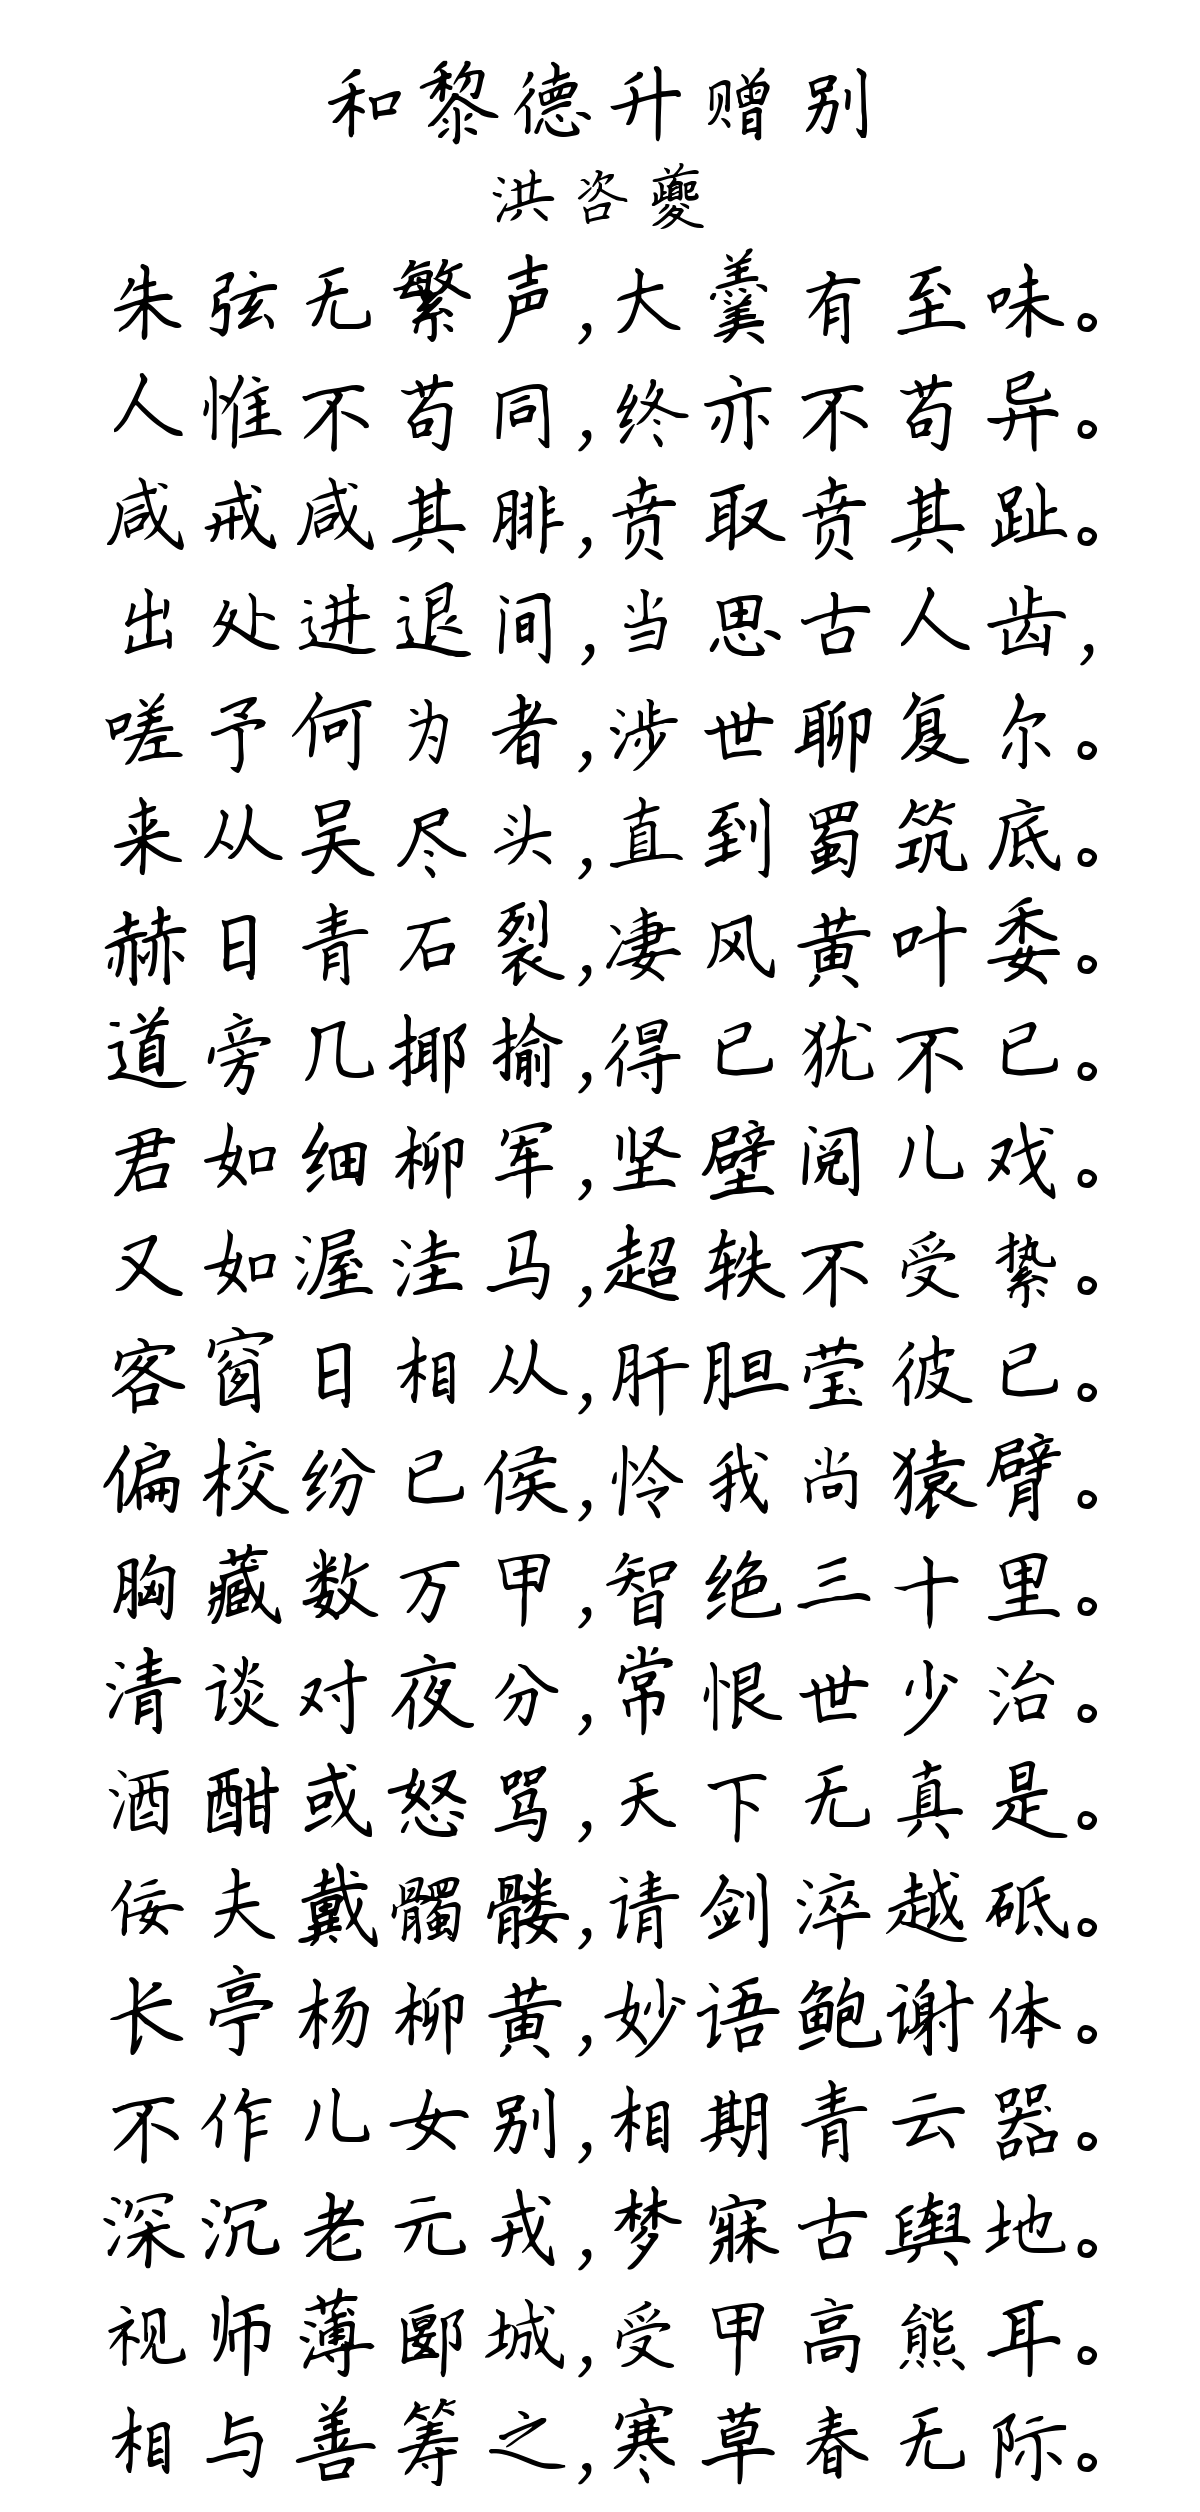 和黎德升赠别
洪咨夔
朱弦无繁声,大羹有至味。
人惟不苟同,终亦不苟异。
咸戒咸其腓,贲取贲其趾。
出处进退间,当思古人齿,
嗟予何为者,涉世聊复尔。
来从吴尽头,直到蜀穷底。
赫日青石裂,凄风黄叶委。
道旁几揶揄,得已犹不已。
君如细柳军,坚壁阋儿戏。
又如渥洼马,超轶不受絷。
容窗日相从,肝胆尝彼己。
偏校纷已侯,怜我尚猿臂。
胸藏数万甲,智绝三千里。
清谈对夜分,常恨世少治。
酒酣或怒骂,天下无真是。
去戴,请剑斗越砥。
长亭杨柳黄,妙语饱谢。
不作儿女别,相期青云器。
深沉老元戎,梦寐古舆地。
视师薄郾城,受甲高熊耳。
相与善筹之,寒草春无际。